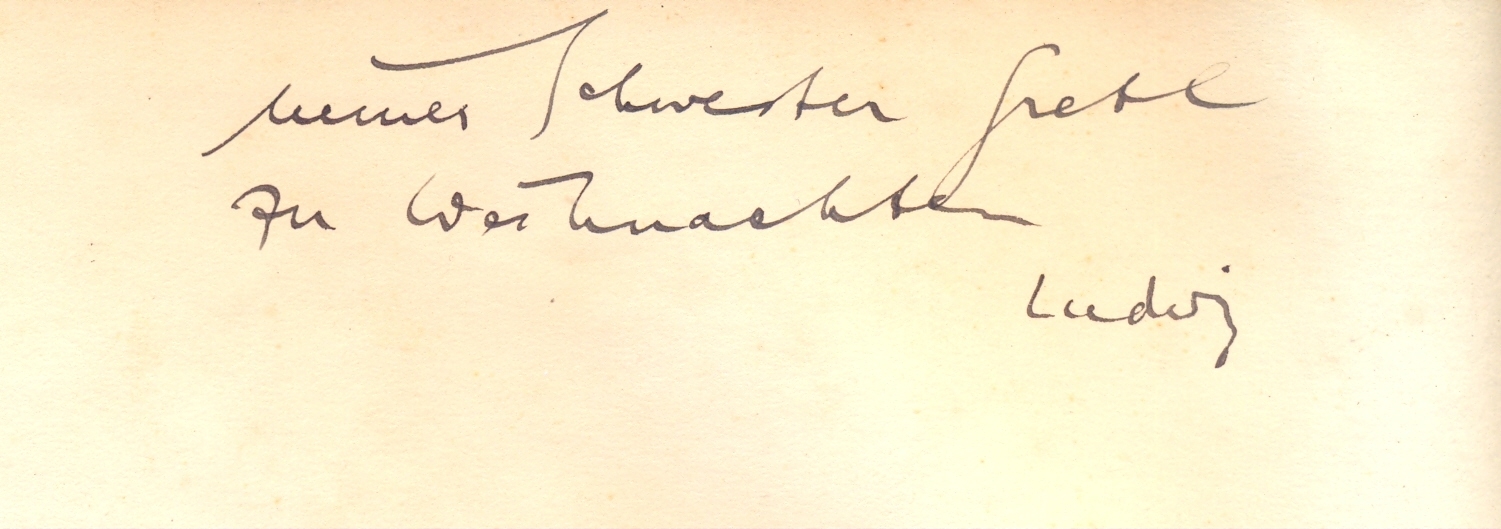 meiner Schwester Gretl
zu Weihnachten
Ludwig